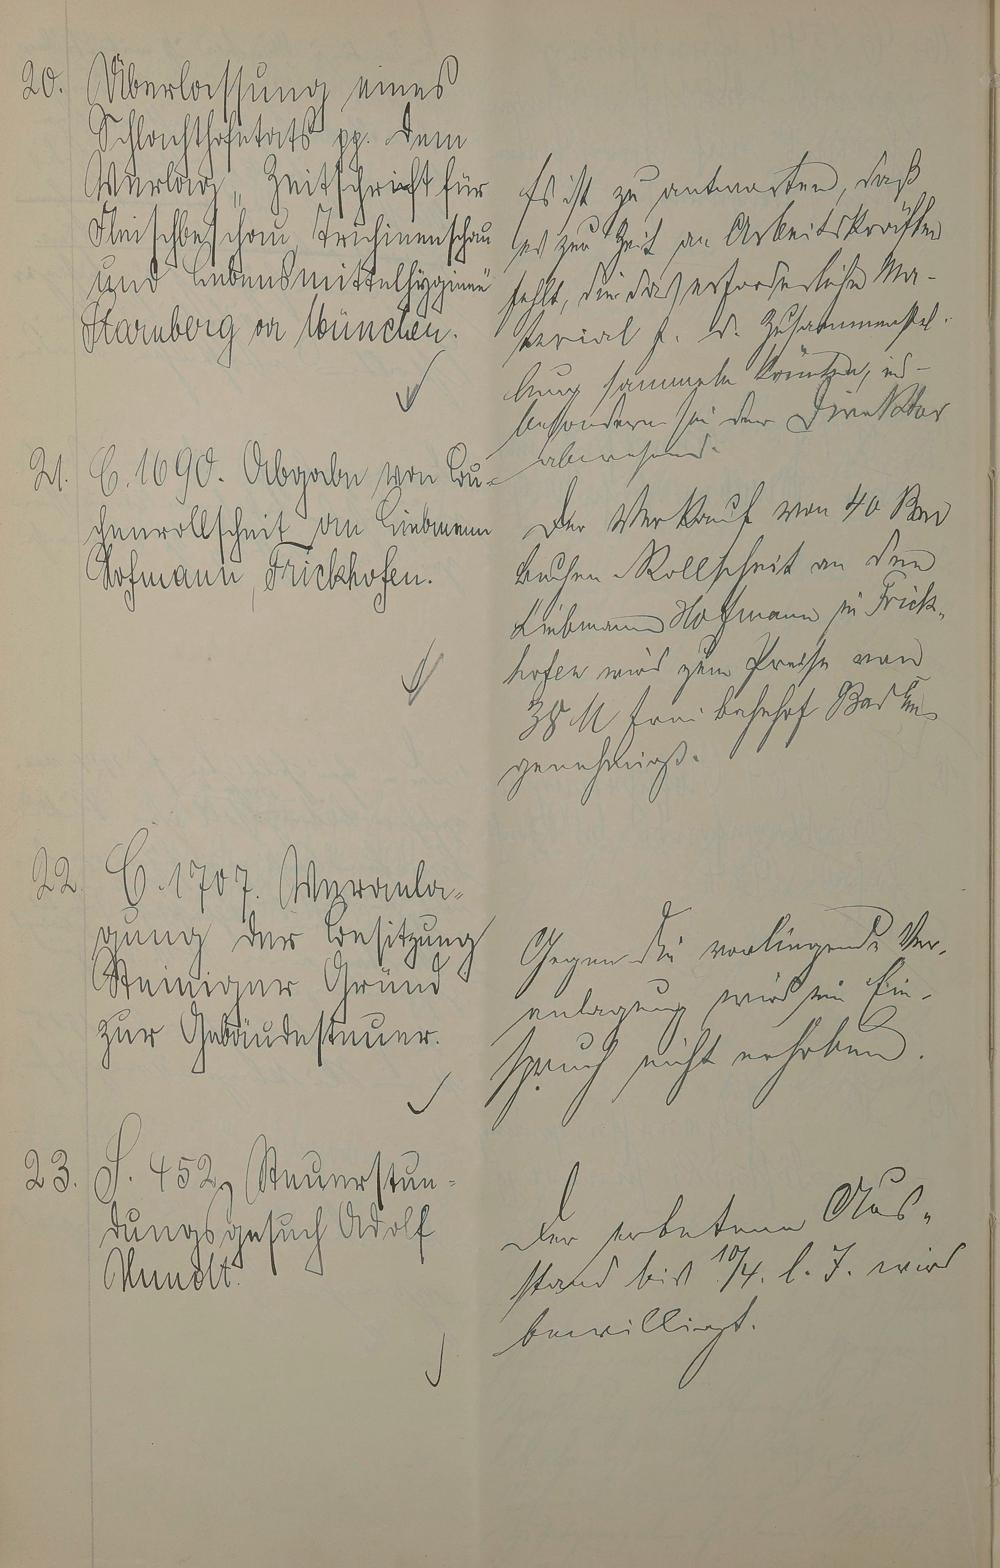 20. Überlassung eines
Schlachthofetats pp. dem
Verlag „Zeitschrift für
Fleischbeschau, Trichinenschau
und Lebensmittelhygiene“
Starnberg or München.
Es ist zu antworten, daß
es zur Zeit an Arbeitskräften
fehlt, die das erforderliche Ma-
terial f. d. Zusammenstel-
lung sammeln könnten, ins-
besondere sei der Direktor
abwesend.
21. C. 1690. Abgabe von Bu-
chenrollscheit an Liebmann
Hofmann, Frickhofen.
Der Verkauf von 40 Rm
buchen Rollscheit an den
Liebmann Hofmann in Frick-
hofen wird zum Preise von
M frei Bahnhof Bad Ems
genehmigt.
22. C. 1707. Veranla-
gung der Besitzung
Steiniger Gründ
zur Gebäudesteuer.
Gegen die vorliegende Ver-
anlagung wird ein Ein-
spruch nicht erhoben.
23. S. 452. Steuerstun-
dungsgesuch Adolf
Der erbetene Aus-
stand bis 10/4. l. J. wird
bewilligt.